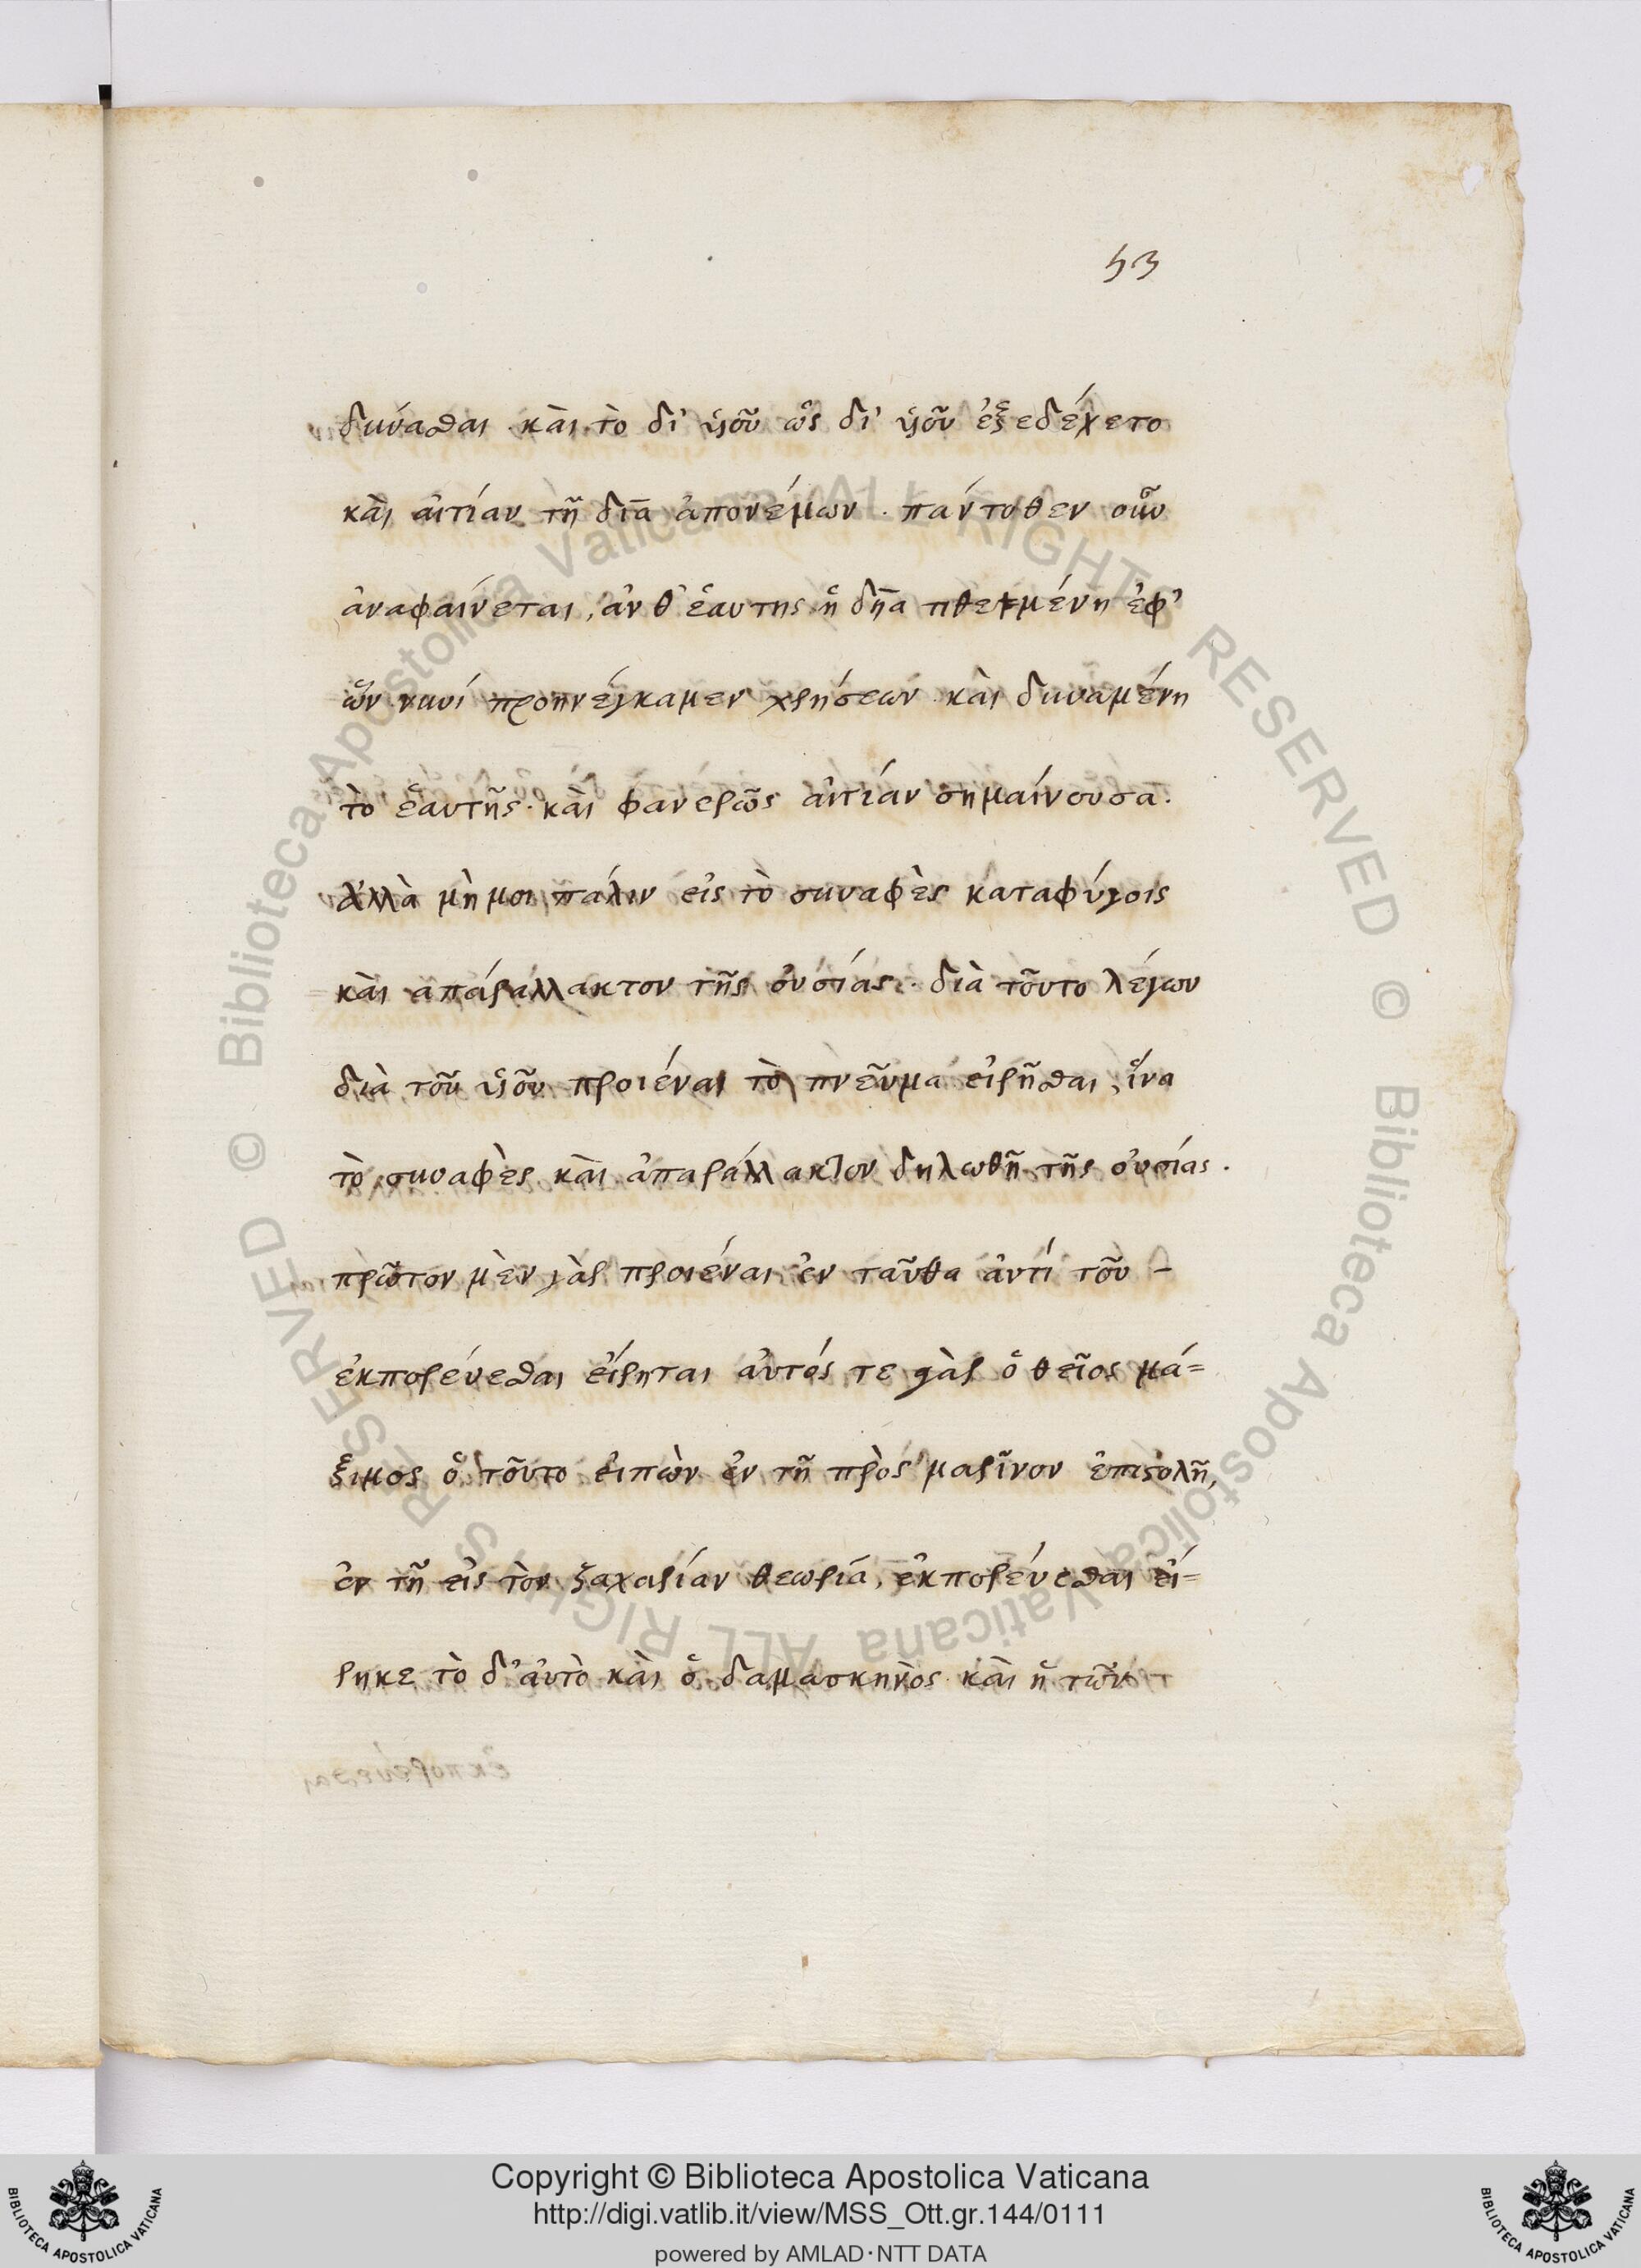 53
δύνασθαι καὶ τὸ δι' ὑιοῦ ὡς δι' ὑιοῦ ἐξεδέχετο
καὶ αἰτίαν τῆ διὰ ἀπονέμων. πάντοθεν οὖν
ἀναφαίνεται, ἀνθ' ἑαυτης ἡ
ὧν νυνί προηνέγκαμεν χρήσεων καὶ δυναμένη
τὸ ἑαυτῆς. καὶ φανερῶς αἰτίαν σημαίνουσα.
ἀλλὰ μὴ μοι πάλιν εἰς τὸ συναφὲς καταφύγοις
καὶ ἀπάράλλακτον τῆς οὐσίας. διὰ τοῦτο λέγων
διὰ τοῦ ὑιοῦ προιέναι τὸ πνεῦμα εἰρῆσθαι, ἵνα
τὸ συναφὲς καὶ ἀπαράλλακτον δηλωθῆ τῆς οὐσίας.
πρῶτον μὲν γὰρ προιέναι ἐν ταῦθα ἀντί τοῦ -
ἐκπορέυεσθαι εἴρηται αὐτός τε γὰρ ὁ θεῖος μά=
ξιμος ὁ τοῦτο εἰπὼν ἐν τῆ πρὸς μαρῖνον ἐπιστολῆ,
ἐν τῆ εἰς τὸν ζαχαρίαν θεωρία, ἐκπορέυεσθαι εἴ=
ρηκε τὸ δ' αὐτὸ καὶ ὁ δαμασκηνὸς καὶ ἡ τῶν
Biblioteca Apostolica Vaticana ALL RIGHTS RESERVED ©
Biblioteca Apostolica Vaticana ALL RIGHTS RESERVED ©
Copyright © Biblioteca Apostolica Vaticana
http://digi.vatlib.it/view/MSS_Ott.gr.144/0111
powered by AMLAD·NTT DATA
BIBLIOTECA APOSTOLICA VATICANA
BIBLIOTECA APOSTOLICA VATICANA